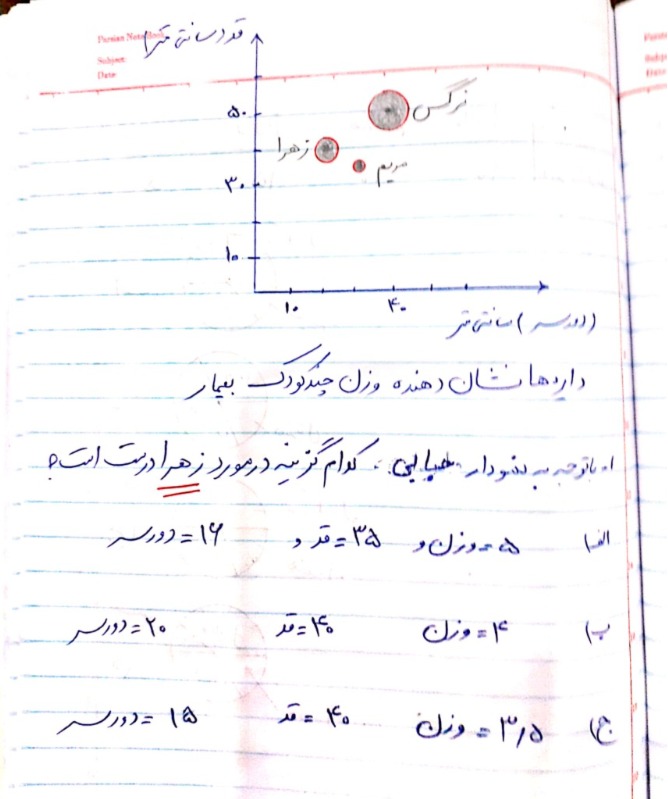 Parsian NoteBook
Subject:
Date:
قد (سانتی متر)
۵۰
نرگس
زهرا
مریم
۳۰
۱۰
۱۰ ۴۰
(دورسر) سانتی متر
دایره‌ها نشان دهنده وزن چند کودک بیمار
۱. باتوجه به نمودار حبابی. کدام گزینه درمورد زهرا درست است؟
الف) ۵=وزن و ۳۵=قد و ۱۶=دورسر
ب) ۴=وزن ۴۰=قد ۲۰=دورسر
ج) ۳/۵=وزن ۴۰=قد ۱۵=دورسر